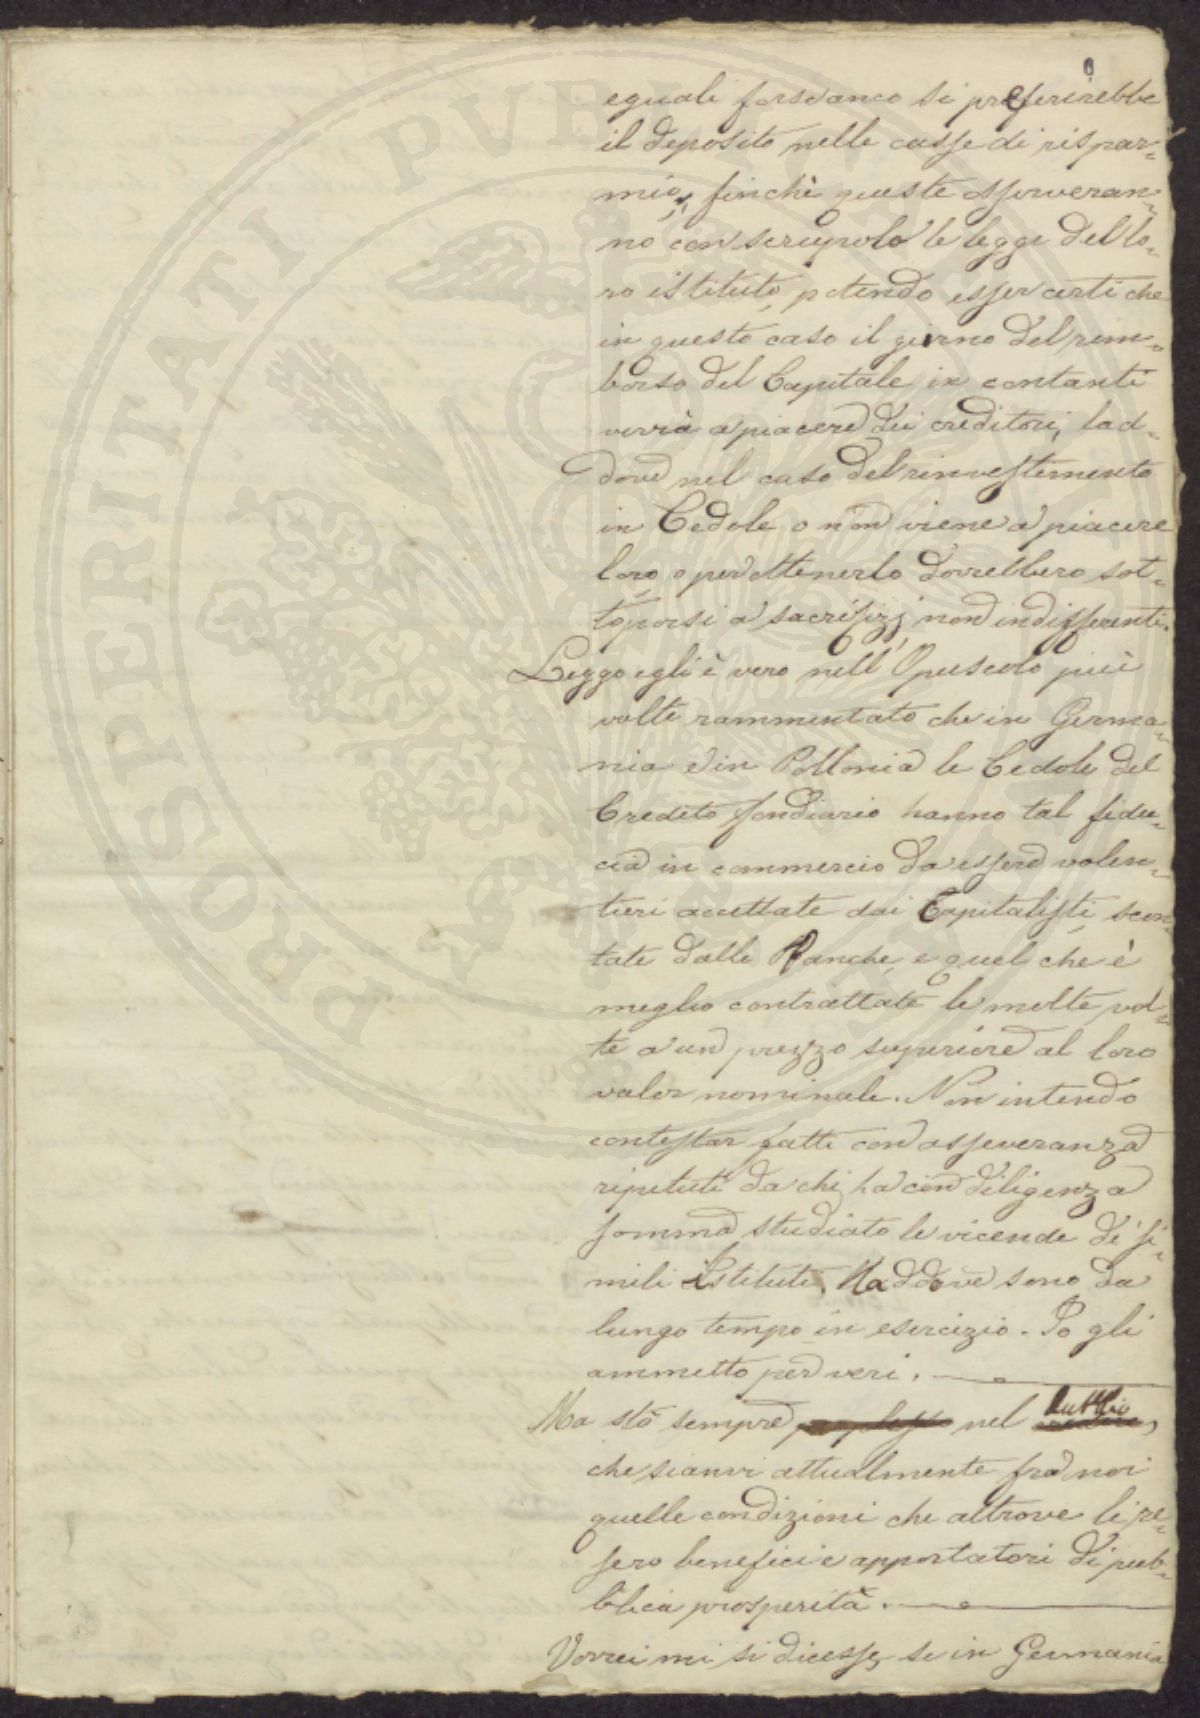 eguali fors'anco si preferirebbe
il deposito nelle casse di rispar-
mio, finchè queste osserveran-
no con scrupolo le leggi del lo-
ro istituto, potendo esser certi che
in questo caso il giorno del rim-
borso del Capitale in contanti
verrà a piacere dei creditori, lad-
dove nel caso del rinvestimento
in Cedole o non viene a piacere
loro o per ottenerlo dovrebbero sot-
toporsi a sacrifizj non indifferenti.
Leggo egli è vero nell'Opuscolo più
volte rammentato che in Germa-
nia e in Pollonia le Cedole del
Credito fondiario hanno tal fidu-
cia in commercio da essere volen-
tieri accettate dai Capitalisti, scon-
tate dalle Banche, e quel che è
meglio contrattate le molte vol-
te a un prezzo superiore al loro
valor nominale. Non intendo
contestar fatti con asseveranza
ripetuti da chi ha con diligenza
somma studiato le vicende di si-
mili Istituti, laddove sono da
lungo tempo in esercizio. Io gli
ammetto per veri.
Ma stò sempre nel dubbio,
che sianvi attualmente fra noi
quelle condizioni che altrove li re-
sero benefici e apportatori di pub-
blica prosperità.
Vorrei mi si dicesse, se in Germania
PROSPERITATI PVBLICAE